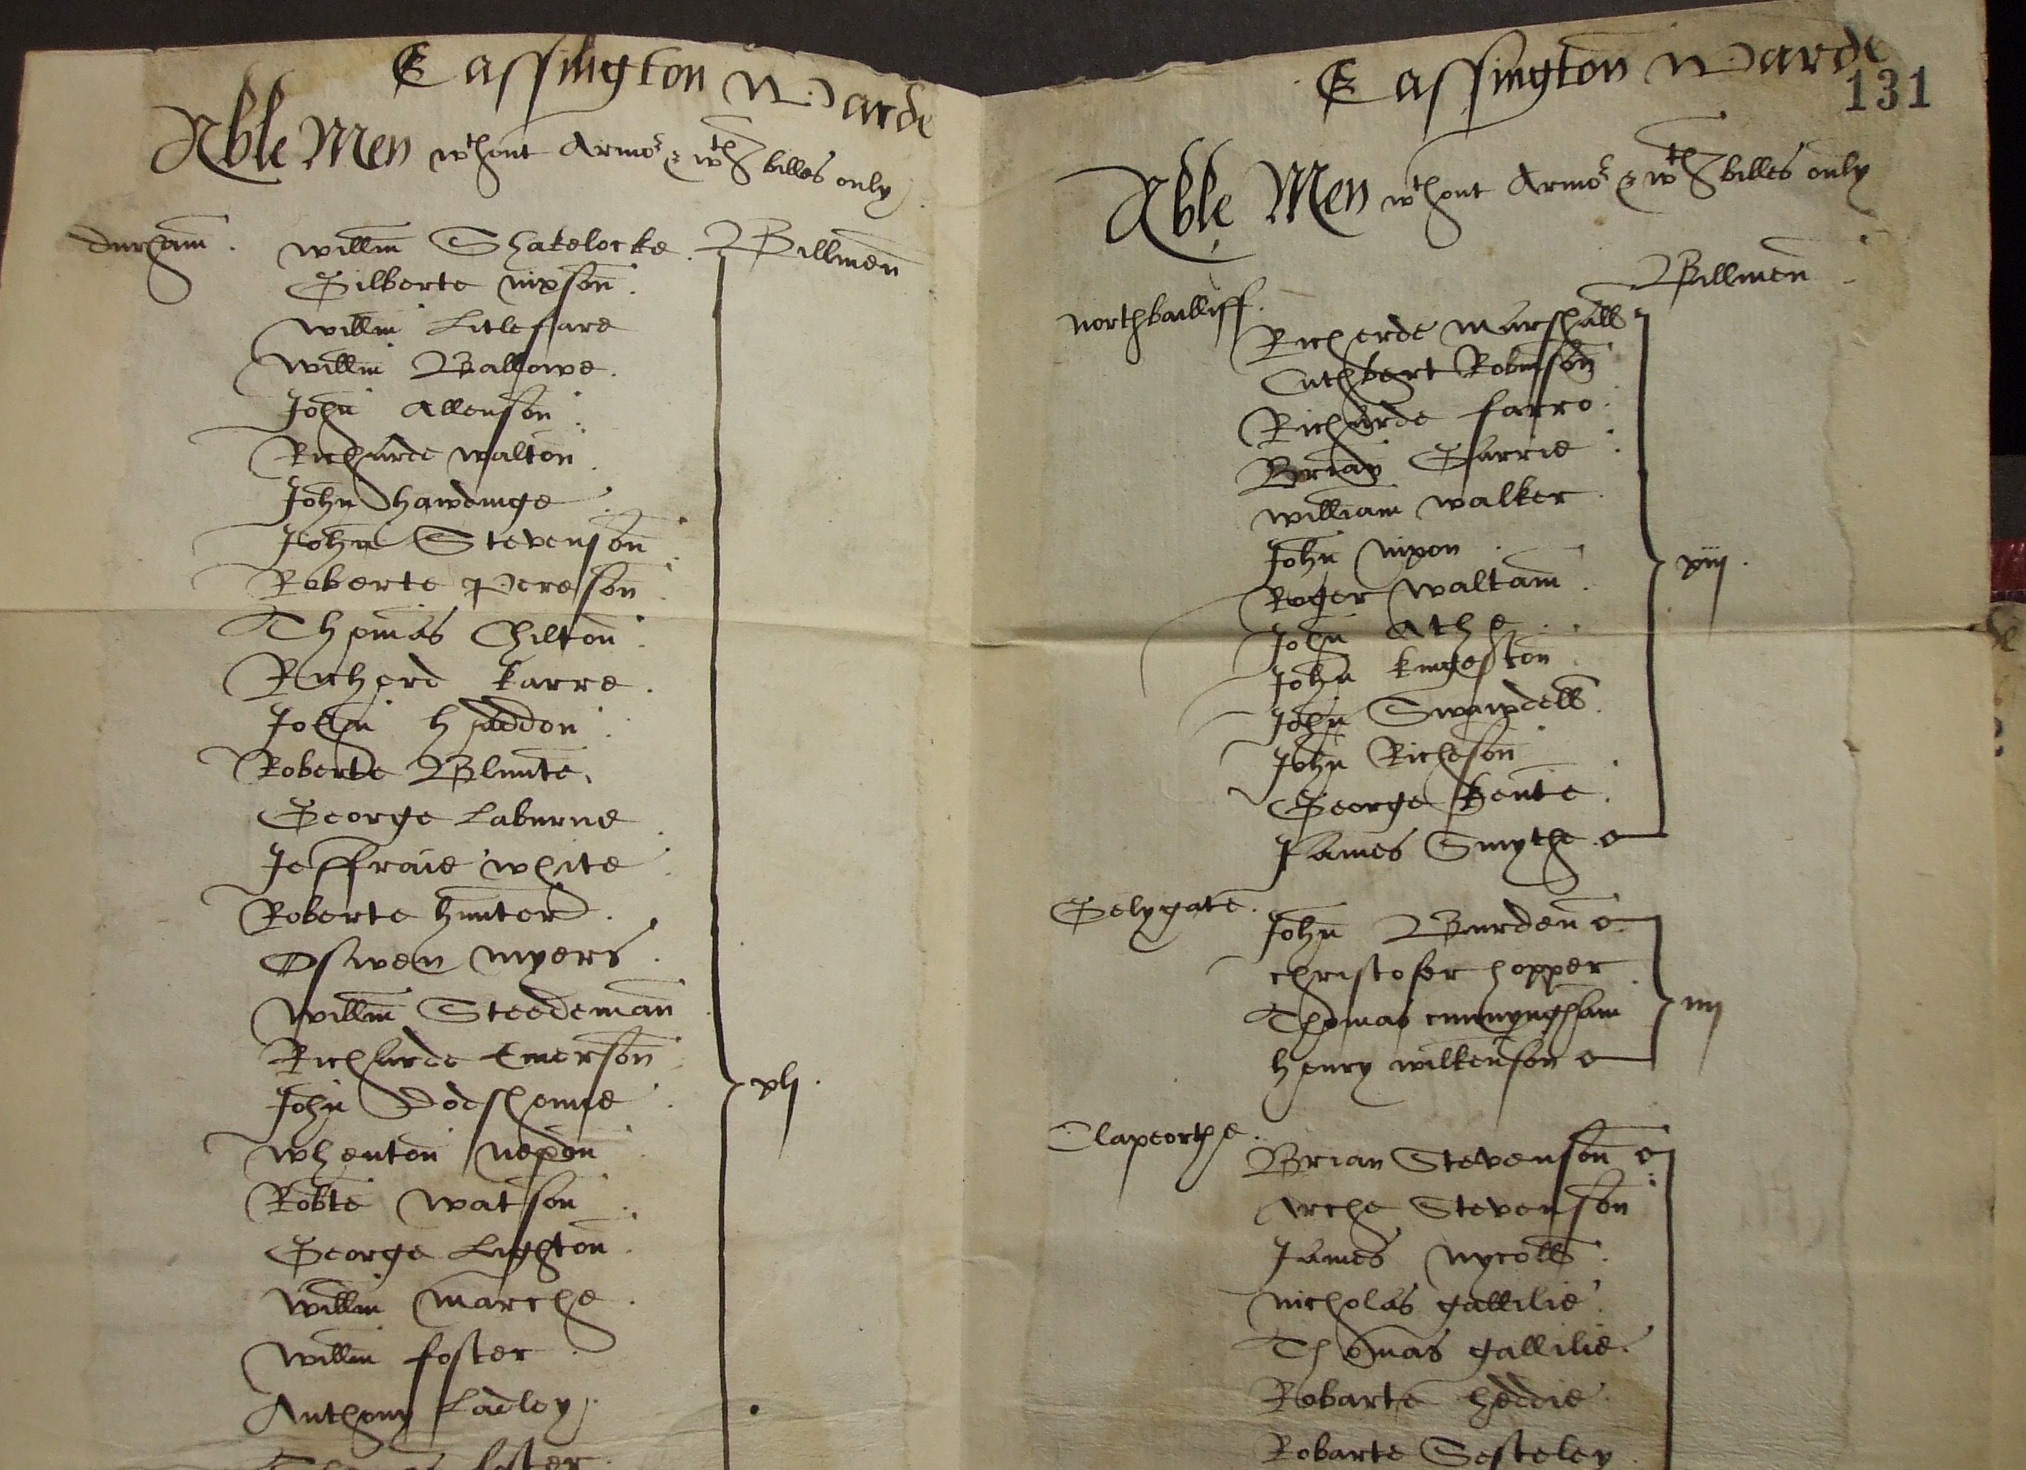 Eassington Warde
Able Men wthout Armor & wth billes only
Durham. Willm Shakelocke. Billmen
Gilberte nixson.
Willm Litlefare
Willm Ballowe.
John Allenson.
Richarde Walton.
John hawdinge
John Stevenson
Roberte Pereson
Thomas Chilton
Richerd karre.
John haddon
Roberte Blunte.
George Laburne
Jeffraie white
Roberte hunter.
Oswen myers.
Willm Steedeman
Richarde Emerson
John Dodshonne
xlj.
Whenton nexon
Robte Watson
George Lighton
Willm marche.
Willm foster
Anthony Ladley
foster.
Eassington Warde
131
Able Men wthout Armor & wth billes only
Billmen
northbailliff.
Richerde marshall
Cuthbert Robinson
Richarde farro.
Brian Garrie
William walker
John nixon.
xiij.
Roger Waltam
John Athe
John kingeston
John Swawdell
John Richeson
George kente.
James Smythe
Gelygate. John Burden
christofer hopper
Thomas cunnyngham
iiij
henry wilkenson
Clapeorthe. Brian Stevenson
Arche Stevenson
James nycoll
nicholas gallilie
Thomas gallilie.
Robarte heddie
Robarte Sesteley